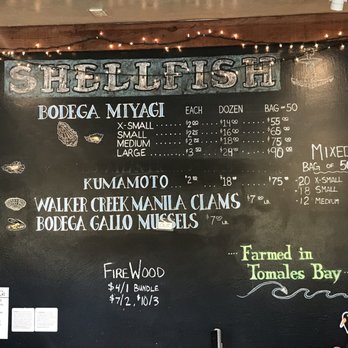 SHELLFISH
BODEGA MIYAGI EACH DOZEN BAG OF 50
X-SMALL $2.00 $14.00 $55.00
SMALL $16.00 $65
MEDIUM $18.00 $75
LARGE $3.50 $90
KUMAMOTO $18 $75
WALKER CREEK MANILA CLAMS $7 LB
BODEGA GALLO MUSSELS $7 LB
MIXED
BAG OF 50
-20 X-SMALL
-18 SMALL
-12 MEDIUM
FIREWOOD
$4/1 BUNDLE
$7/2, $10/3
Farmed in
Tomales Bay